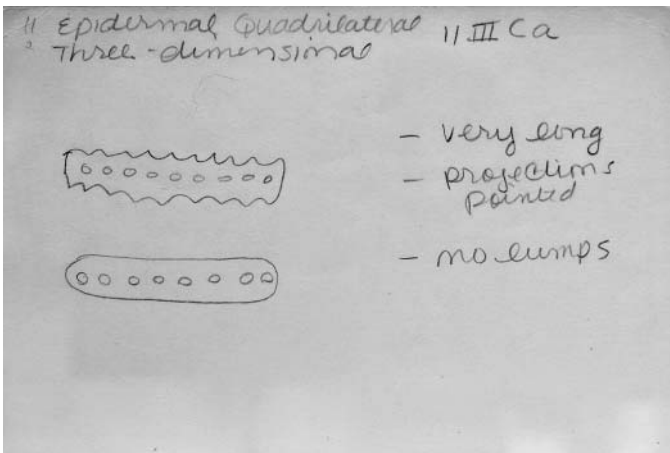 11 Epidermal Quadrilateral 11 III Ca
Three-dimensional
- very long
- projections
pointed
- no lumps